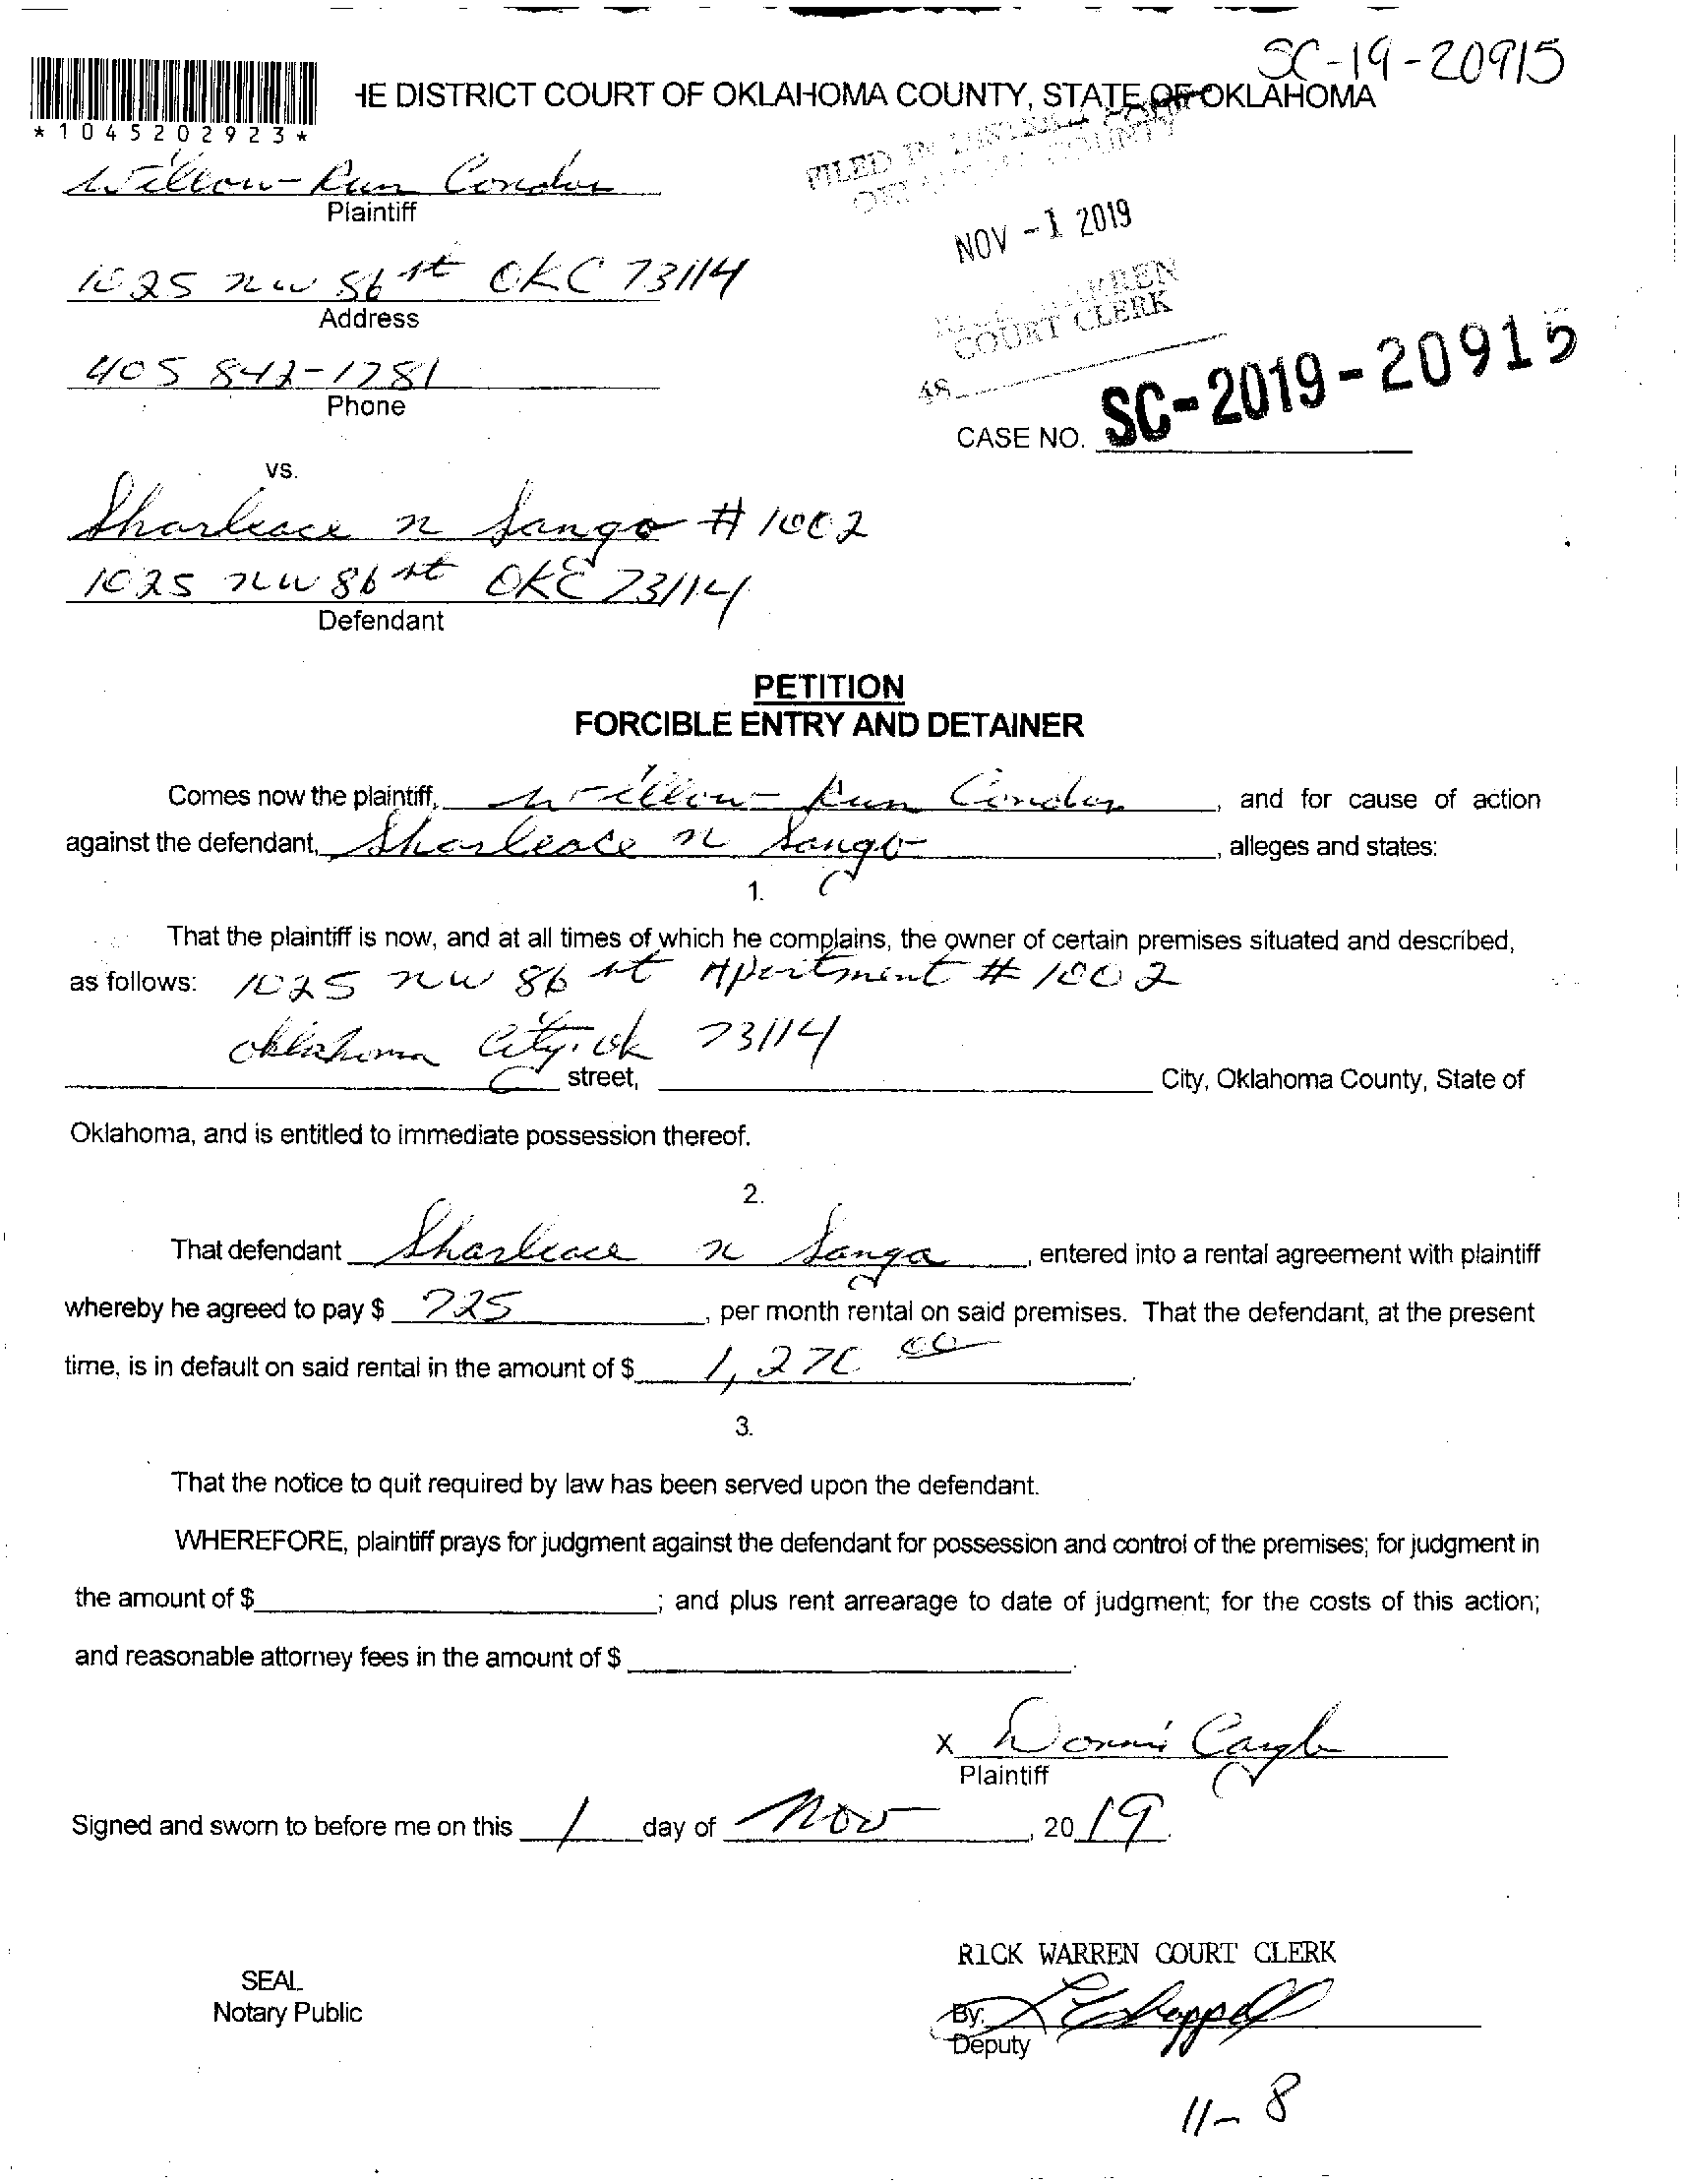 SC-19-20915
HE DISTRICT COURT OF OKLAHOMA COUNTY, STATE OF OKLAHOMA
*1045202923*
FILED IN DISTRICT COURT
OKLAHOMA COUNTY
Willow-Run Condos
Plaintiff
NOV -1 2019
1025 nw 86 st OKC 73114
Address
RICK WARREN
COURT CLERK
405 842-1781
Phone
48
CASE NO. SC-2019-20915
vs.
Sharleace n Sango # 1002
1025 nw 86 st OKC 73114
Defendant
PETITION
FORCIBLE ENTRY AND DETAINER
Comes now the plaintiff, Willow-Run Condos, and for cause of action
against the defendant, Sharleace n Sango, alleges and states:
1.
That the plaintiff is now, and at all times of which he complains, the owner of certain premises situated and described,
as follows: 1025 nw 86 st Apertment # 1002
Oklahoma City, ok 73114
street, City, Oklahoma County, State of
Oklahoma, and is entitled to immediate possession thereof.
2.
That defendant Sharleace n Sango, entered into a rental agreement with plaintiff
whereby he agreed to pay $ 725, per month rental on said premises. That the defendant, at the present
time, is in default on said rental in the amount of $ 1,270 00.
3.
That the notice to quit required by law has been served upon the defendant.
WHEREFORE, plaintiff prays for judgment against the defendant for possession and control of the premises; for judgment in
the amount of $ ; and plus rent arrearage to date of judgment; for the costs of this action;
and reasonable attorney fees in the amount of $ .
X Donni Cargle
Plaintiff
Signed and sworn to before me on this 1 day of Nov, 20 19.
RICK WARREN COURT CLERK
SEAL
Notary Public
By:
Deputy
11-8